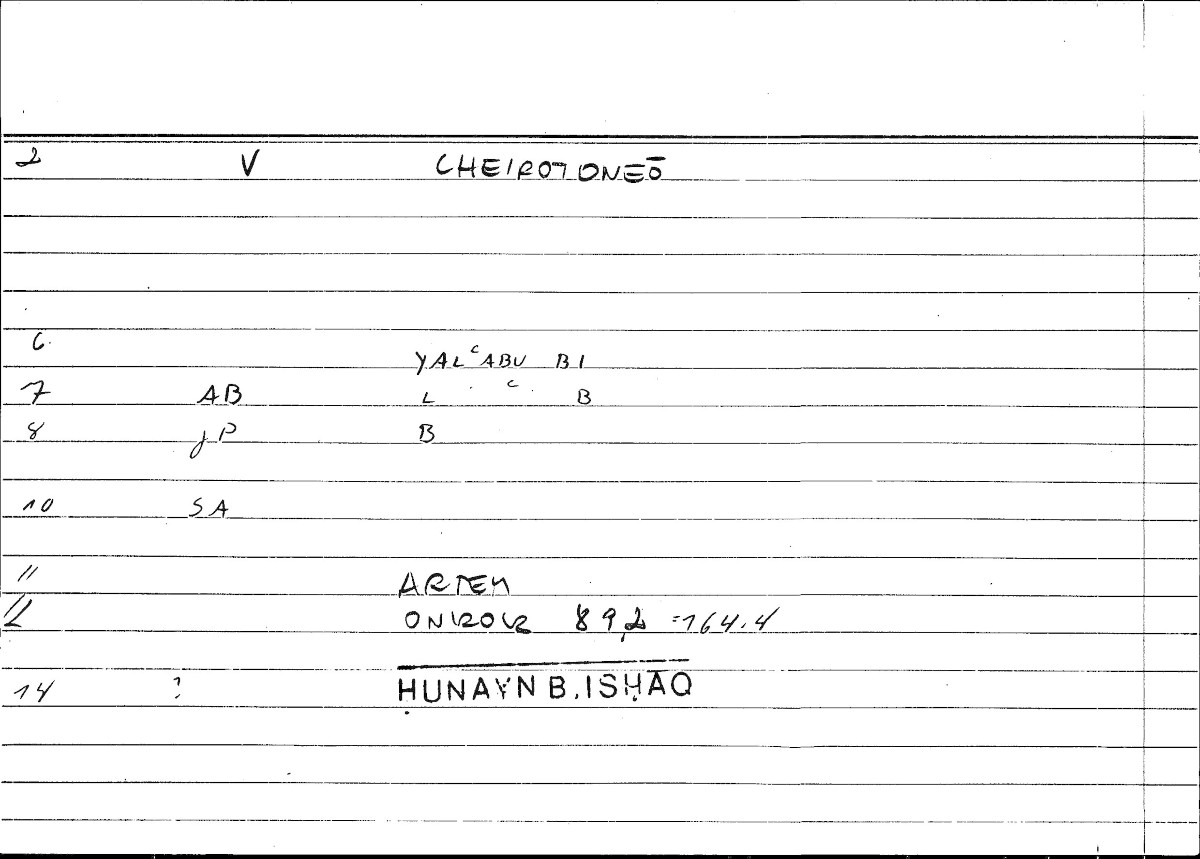 2 V CHEIROTONEŌ
6. YALʿABU BI
7 AB L ʿ B
8 jP B
10 SA
11 ARTEM
12 ONIROCR 89,2 = 164.4
14 ? ḤUNAYN B. ISḤĀQ